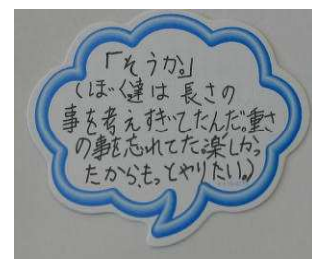 「そうか。」
(ぼく達は長さの
事を考えすぎてたんだ。重さ
の事を忘れてた。楽しかっ
たから、もっとやりたい。)